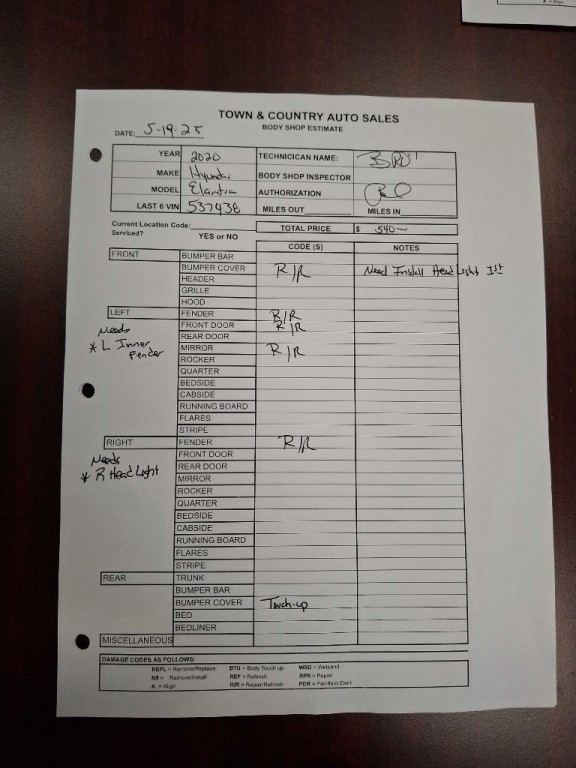 TOWN & COUNTRY AUTO SALES
BODY SHOP ESTIMATE
DATE: 5-19-25
YEAR 2020 TECHNICICAN NAME:
MAKE Hyundai BODY SHOP INSPECTOR
MODEL Elantra AUTHORIZATION
LAST 6 VIN 537438 MILES OUT MILES IN
Current Location Code: TOTAL PRICE $ 540-
Serviced? YES or NO CODE (S) NOTES
FRONT BUMPER BAR
BUMPER COVER R/R Need Install Head Light 1st
HEADER
GRILLE
HOOD
LEFT FENDER R/R
FRONT DOOR R/R
Needs REAR DOOR
* L Inner Fender MIRROR R/R
ROCKER
QUARTER
BEDSIDE
CABSIDE
RUNNING BOARD
FLARES
STRIPE
RIGHT FENDER R/R
FRONT DOOR
Needs REAR DOOR
* R Head Light MIRROR
ROCKER
QUARTER
BEDSIDE
CABSIDE
RUNNING BOARD
FLARES
STRIPE
REAR TRUNK
BUMPER BAR
BUMPER COVER Touch-up
BED
BEDLINER
MISCELLANEOUS
DAMAGE CODES AS FOLLOWS:
REPL = Remove/Replace BTU = Body Touch up WSD = Wetsand
R/I = Remove/Install REF = Refinish RPR = Repair
A = Align R/R = Repair/Refinish PDR = Paintless Dent